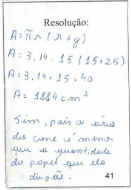 Resolução:
A = π r (r + g)
A = 3,14 . 15 (15+25)
A = 3,14 . 15 . 40
A = 1884 cm²
Sim, pois a área
do cone é menor
que a quantidade
do papel que ela
dispõe.
41